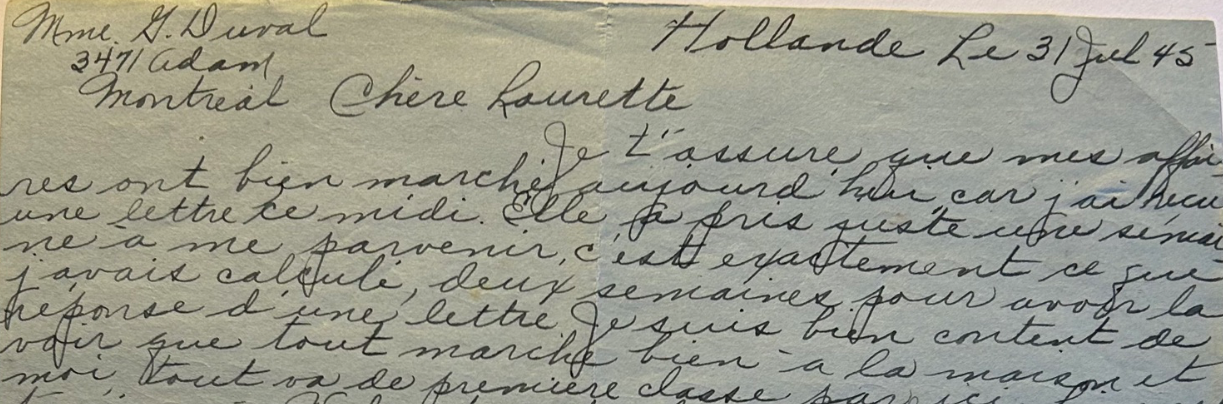 Mme. G. Duval
3471 Adam
Montréal
Hollande Le 31 Jul 45
Chère Laurette
Je t'assure que mes affai-
res ont bien marché aujourd'hui car j'ai recu
une lettre ce midi. Elle a pris juste une semai-
ne à me parvenir, c'est exactement ce que
j'avais calculé, deux semaines pour avoir la
réponse d'une lettre. Je suis bien content de
voir que tout marche bien à la maison et
moi, tout va de première classe par ici.